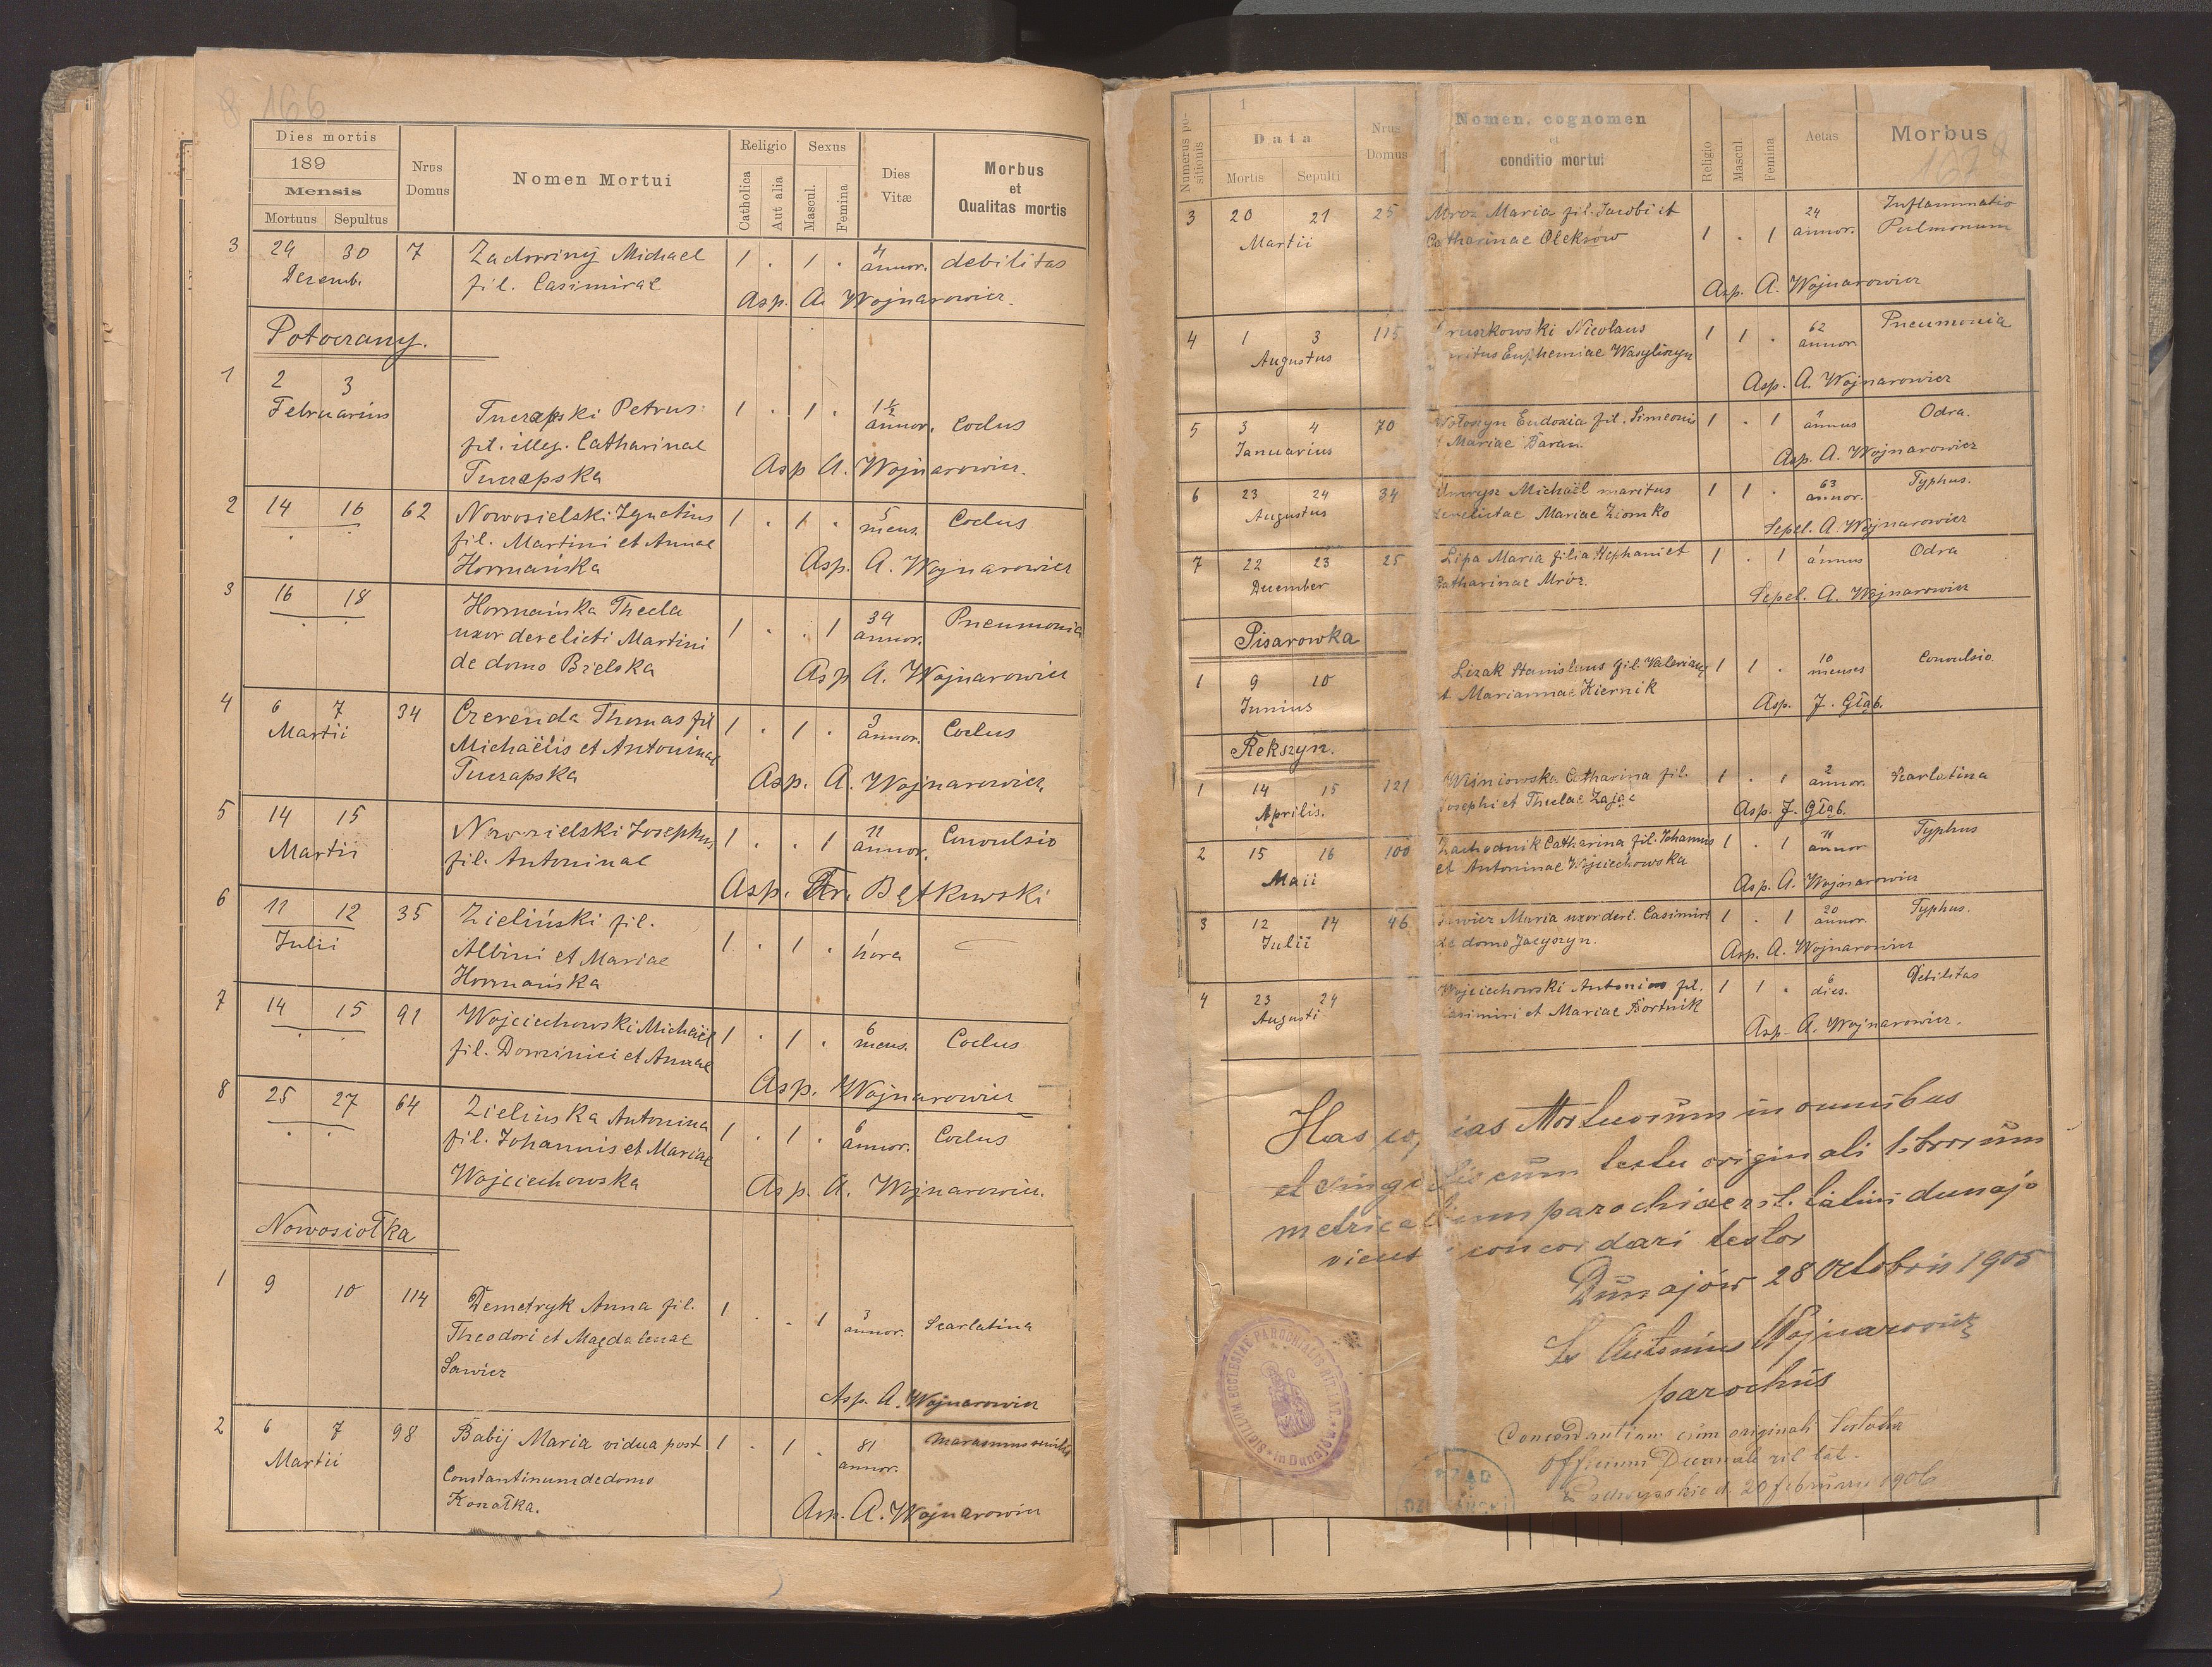 8 166
Dies mortis
189
Mensis
Mortuus Sepultus
Nrus Domus
Nomen Mortui
Religio
Catholica
Aut alia
Sexus
Mascul.
Femina
Dies Vitæ
Morbus et Qualitas mortis
3 29 30 7 Zadworny Michael 1 . 1 . 4 annor. debilitas
Decemb. fil. Casimirae
Asp. A. Wojnarowicz.
Potoczany.
1 2 3
Februarius Tuczapski Petrus 1 . 1 . 1 1/2 annor. Coclus
fil. illeg. Catharinae
Tuczapska Asp A. Wojnarowicz.
2 14 16 62 Nowosielski Ignatius 1 . 1 . 5 mens. Coclus
fil. Martini et Annae
Hormańska Asp. A. Wojnarowicz
3 16 18 Hormańska Thecla 1 . . 1 39 annor. Pneumonia
uxor derelicti Martini
de domo Bielska Asp A. Wojnarowicz
4 6 7 34 Czerenda Thomas fil 1 . 1 . 3 annor. Coclus
Martii Michaëlis et Antoninae
Tuczapska Asp. A. Wojnarowicz.
5 14 15 Nowosielski Josephus 1 . . 1 11 annor. Convulsio
Martii fil. Antoninae
Asp. Fr. Bętkowski
6 11 12 35 Zieliński fil. 1 . 1 . 1 hora
Julii Albini et Mariae
Hormańska
7 14 15 91 Wojciechowski Michaël 1 . 1 . 6 mens. Coclus
fil. Dominici et Annae
Asp. Wojnarowicz
8 25 27 64 Zielinska Antonina 1 . 1 . 6 annor. Coclus
fil. Johannis et Mariae
Wojciechowska Asp. A. Wojnarowicz.
Nowosiołka
1 9 10 114 Demetryk Anna fil. 1 . . 1 3 annor. Scarlatina
Theodori et Magdalenae
Sawicz
Asp. A. Wojnarowicz
2 6 7 98 Babij Maria vidua post 1 . 1 . 81 annor. marasmus senilis
Martii Constantinum de domo
Konatka.
Asp. A. Wojnarowicz
Numerus positionis
1
Data
Mortis Sepulti
Nrus Domus
Nomen, cognomen
et
conditio mortui
Religio
Mascul
Femina
Aetas
Morbus
167
3 20 21 25 Mroz Maria fil. Jacobi et 1 . 1 24 annor. Inflammatio
Martii Catharinae Oleksów Pulmonum
Asp. A. Wojnarowicz
4 1 3 115 ruszkowski Nicolaus 1 1 . 62 annor Pneumonia
Augustus ritus Euphemiae Wasyliszyn
Asp. A. Wojnarowicz
5 3 4 70 Wołoszyn Eudoxia fil. Simeonis 1 . 1 1 annus Odra.
Januarius Mariae Baran.
Asp. A. Wojnarowicz
6 23 24 34 Michaël maritus 1 1 . 63 annor. Typhus.
Augustus derelictae Mariae Ziomko
Sepel. A. Wojnarowicz
7 22 23 25 Lipa Maria filia Stephani et 1 . 1 1 annus Odra
December Catharinae Mróz.
Sepel. A. Wojnarowicz
Pisarowka
1 9 10 Lizak Stanislaus fil. Valeriani 1 1 . 10 menses Convulsio
Junius et Mariannae Kiernik
Asp. J. Głąb.
Rekszyn.
1 14 15 121 Wiśniowska Catharina fil. 1 . 1 2 annor. Scarlatina
Aprilis. Josephi et Theclae Zając
Asp. J. Głąb.
2 15 16 100 Zachodnik Catharina fil. Johannis 1 . 1 11 annor Typhus
Maii et Antoninae Wojciechowska
Asp. A. Wojnarowicz
3 12 14 46 Maria uxor derl. Casimiri 1 . 1 20 annor. Typhus.
Julii de domo Jaegszyn.
Asp. A. Wojnarowicz
4 23 24 Wojciechowski Antonius fil. 1 1 . 6 dies. Debilitas
Augusti Casimiri et Mariae Bortnik
Asp. A. Wojnarowicz.
Has co ias Mortuorum in omnibus
et singulis cum textu originali librorum
metricalium parochiae rit. latini dunajo
viensi concordari testor
Dunajów 28 Octobris 1905
Antonius Wojnarowicz
parochus
Concordantiam cum originali testatur
Officium Decanale rit lat.
d. 20 februarii 1906
SIGILLUM ECCLESIAE PAROCHIALIS RIT. LAT. in Dunajów